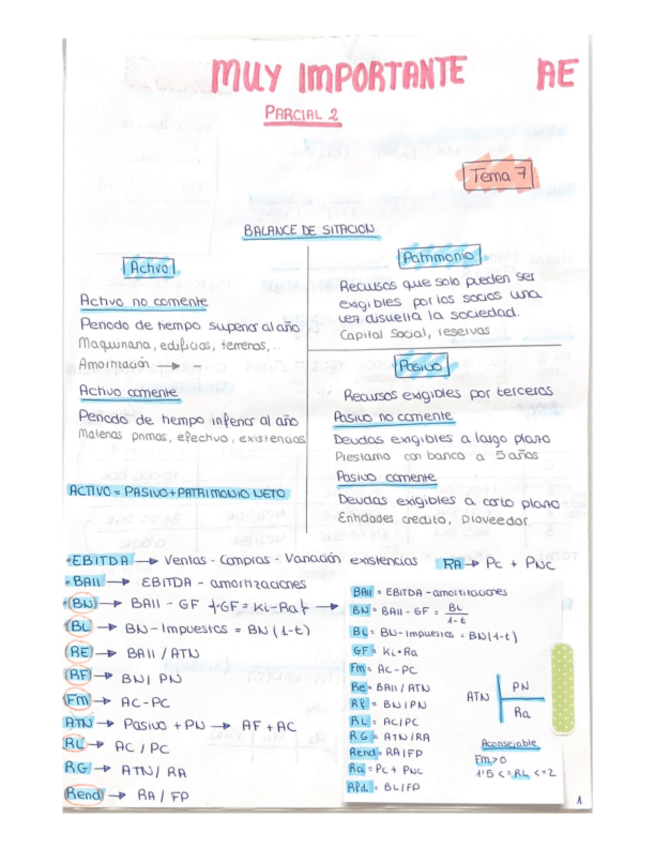 MUY IMPORTANTE AE
PARCIAL 2
Tema 7
BALANCE DE SITACION
Activo
Activo no corriente
Periodo de tiempo superior al año
Maquinaria, edificios, terrenos,..
Amortización → -
Activo corriente
Periodo de tiempo inferior al año
Materias primas, efectivo, existencias
ACTIVO = PASIVO + PATRIMONIO NETO
Patrimonio
Recursos que solo pueden ser
exigibles por los socios una
vez disuelta la sociedad.
Capital Social, reservas
Pasivo
Recursos exigibles por terceros
Pasivo no corriente
Deudas exigibles a largo plazo
Prestamo con banco a 5 años
Pasivo corriente
Deudas exigibles a corto plazo
Entidades credito, proveedor.
EBITDA → Ventas - Compras - Variación existencias
RA → PC + PNC
BAII → EBITDA - amortizaciones
BN → BAII - GF {GF = Ki·Ra} →
BL → BN - Impuestos = BN (1-t)
RE → BAII / ATN
RF → BN / PN
FM → AC - PC
ATN → Pasivo + PN → AF + AC
RL → AC / PC
RG → ATN / RA
Rend → RA / FP
BAII = EBITDA - amortizaciones
BN = BAII - GF = BL / 1-t
BL = BN - Impuestos = BN(1-t)
GF = Ki·Ra
Fm = AC - PC
Re = BAII / ATN
RF = BN / PN
RL = AC / PC
RG = ATN / RA
Rend = RA / FP
Ra = PC + PNC
RFd = BL / FP
ATN
PN
Ra
Aconsejable
Fm > 0
1'5 <= RL <= 2
1